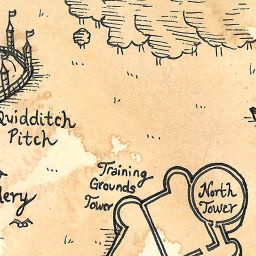 Quidditch
Pitch
Training
Grounds
Tower
North
Tower